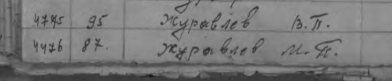 4775 95 Журавлев В.П.
4476 87. Журавлев М.П.